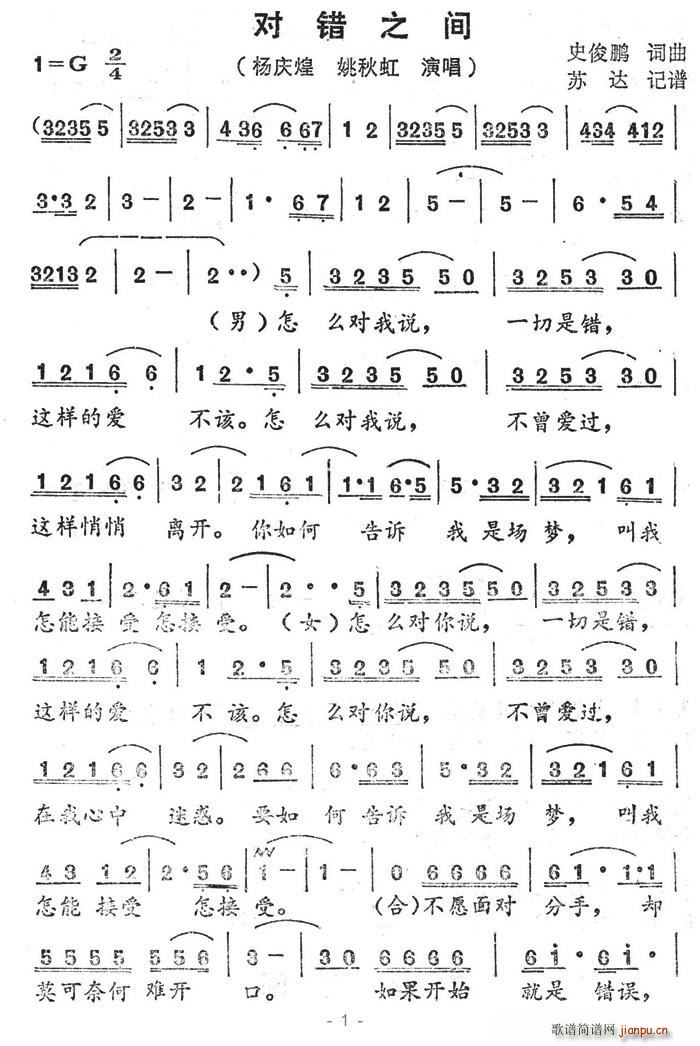 对错之间
1=G 2/4
（杨庆煌 姚秋虹 演唱）
史俊鹏 词曲
苏达 记谱
(32355 | 32533 | 436 667 | 1 2 | 32355 | 32533 | 434 412 |
3·3 2 | 3 - | 2 - | 1· 67 | 1 2 | 5 - | 5 - | 6· 54 |
32132 | 2 - | 2··) 5 | 3235 50 | 3253 30 |
（男）怎 么对我说， 一切是错，
1216 6 | 12· 5 | 3235 50 | 3253 30 |
这样的爱 不该。怎 么对我说， 不曾爱过，
12166 | 32 | 2161 | 1·1 6·5 | 5·32 | 32161 |
这样悄悄 离开。你如何 告诉 我是场梦，叫我
431 | 2·61 | 2 - | 2·· 5 | 323550 | 32533 |
怎能接受怎接受。（女）怎么对你说， 一切是错，
1216 6 | 1 2· 5 | 3235 50 | 3253 30 |
这样的爱 不该。怎 么对你说， 不曾爱过，
12166 | 32 | 266 | 6·63 | 5·32 | 32161 |
在我心中 迷惑。要如何告诉我是场梦，叫我
43 12 | 2·56 | 1 - | 1 - | 0 6666 | 61· 1·1 |
怎能 接受 怎接受。 （合）不愿面对 分手， 却
5555 552 | 3 - | 30 6666 | 61· 61· |
莫可奈何 难开 口。 如果开始 就是 错误，
- 1 -
歌谱简谱网
jianpu.cn